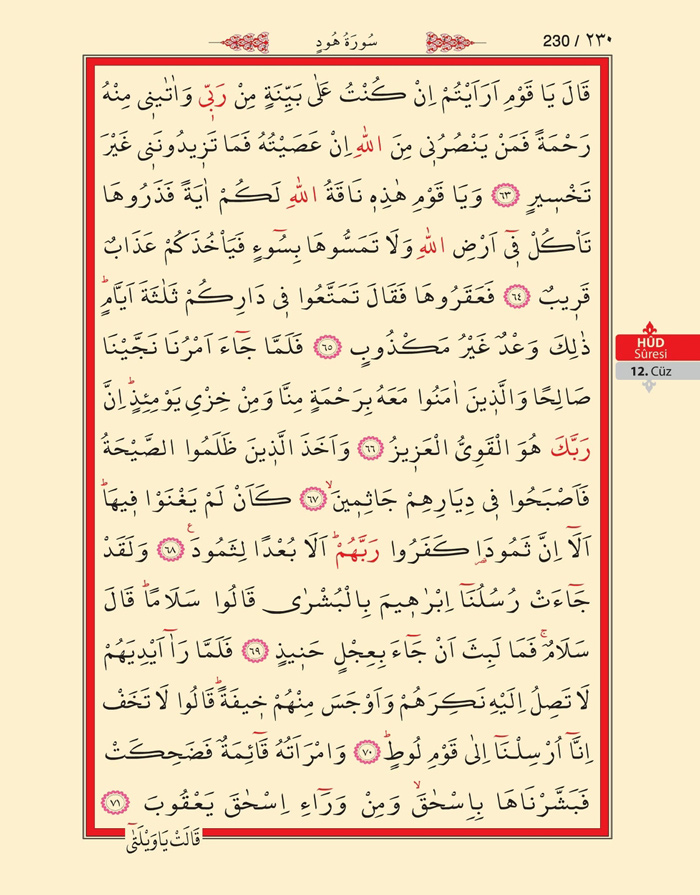 سُورَةُ هُودٍ
230 / ٢٣٠
قَالَ يَا قَوْمِ اَرَاَيْتُمْ اِنْ كُنْتُ عَلٰى بَيِّنَةٍ مِنْ رَبّ۪ي وَاٰتٰين۪ي مِنْهُ
رَحْمَةً فَمَنْ يَنْصُرُن۪ي مِنَ اللّٰهِ اِنْ عَصَيْتُهُ فَمَا تَز۪يدُونَن۪ي غَيْرَ
تَخْس۪يرٍ ٦٣ وَيَا قَوْمِ هٰذِه۪ نَاقَةُ اللّٰهِ لَكُمْ اٰيَةً فَذَرُوهَا
تَأْكُلْ ف۪ٓي اَرْضِ اللّٰهِ وَلَا تَمَسُّوهَا بِسُٓوءٍ فَيَأْخُذَكُمْ عَذَابٌ
قَر۪يبٌ ٦٤ فَعَقَرُوهَا فَقَالَ تَمَتَّعُوا ف۪ي دَارِكُمْ ثَلٰثَةَ اَيَّامٍۜ
ذٰلِكَ وَعْدٌ غَيْرُ مَكْذُوبٍ ٦٥ فَلَمَّا جَٓاءَ اَمْرُنَا نَجَّيْنَا
صَالِحًا وَالَّذ۪ينَ اٰمَنُوا مَعَهُ بِرَحْمَةٍ مِنَّا وَمِنْ خِزْيِ يَوْمِئِذٍۜ اِنَّ
رَبَّكَ هُوَ الْقَوِيُّ الْعَز۪يزُ ٦٦ وَاَخَذَ الَّذ۪ينَ ظَلَمُوا الصَّيْحَةُ
فَاَصْبَحُوا ف۪ي دِيَارِهِمْ جَاثِم۪ينَۙ ٦٧ كَاَنْ لَمْ يَغْنَوْا ف۪يهَاۜ
اَلَٓا اِنَّ ثَمُودَا۬ كَفَرُوا رَبَّهُمْۜ اَلَا بُعْدًا لِثَمُودَ۟ ٦٨ وَلَقَدْ
جَٓاءَتْ رُسُلُنَٓا اِبْرٰه۪يمَ بِالْبُشْرٰى قَالُوا سَلَامًاۜ قَالَ
سَلَامٌۚ فَمَا لَبِثَ اَنْ جَٓاءَ بِعِجْلٍ حَن۪يذٍ ٦٩ فَلَمَّا رَآٰ اَيْدِيَهُمْ
لَا تَصِلُ اِلَيْهِ نَكِرَهُمْ وَاَوْجَسَ مِنْهُمْ خ۪يفَةًۜ قَالُوا لَا تَخَفْ
اِنَّٓا اُرْسِلْنَٓا اِلٰى قَوْمِ لُوطٍۜ ٧٠ وَامْرَاَتُهُ قَٓائِمَةٌ فَضَحِكَتْ
فَبَشَّرْنَاهَا بِاِسْحٰقَۙ وَمِنْ وَرَٓاءِ اِسْحٰقَ يَعْقُوبَ ٧١
قَالَتْ يَا وَيْلَتٰٓى
HÛD
Sûresi
12. Cüz